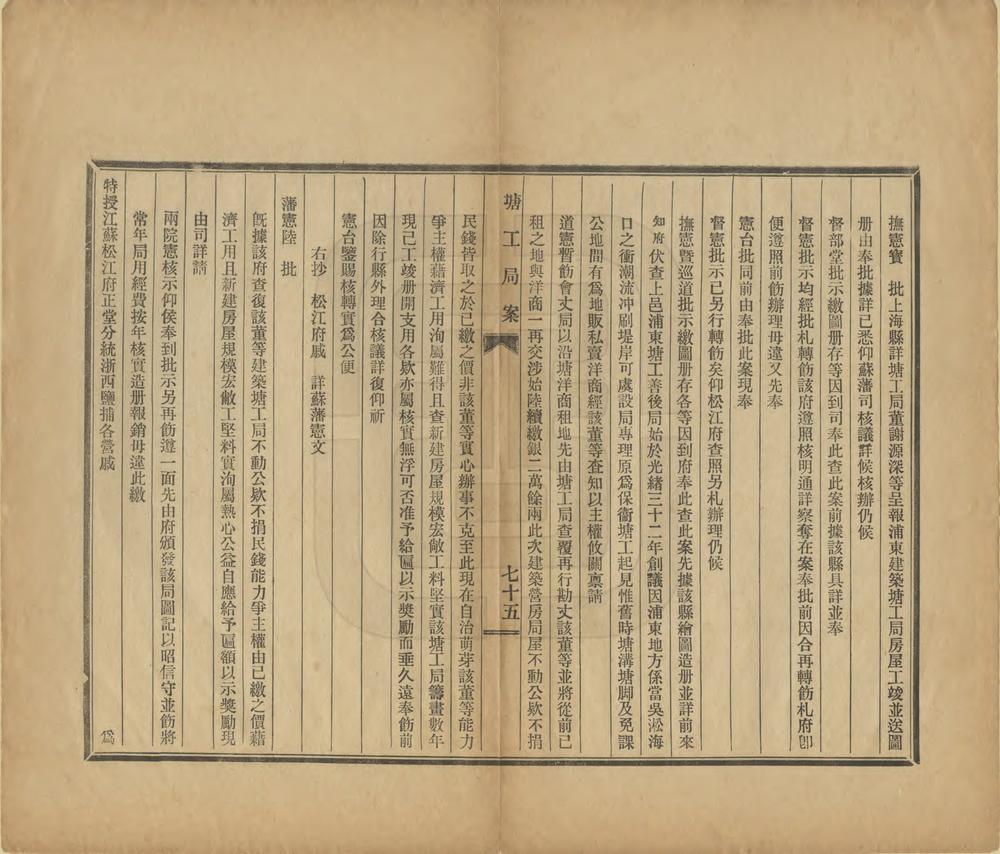 撫憲寳　批上海縣詳塘工局董謝源深等呈報浦東建築塘工局房屋工竣並送圖
册由奉批據詳已悉仰蘇藩司核議詳候核辦仍候
督部堂批示繳圖册存等因到司奉此查此案前據該縣具詳並奉
督憲批示均經批札轉飭該府遵照核明通詳察奪在案奉批前因合再轉飭札府卽
便遵照前飭辦理毋違又先奉
憲台批同前由奉批此案現奉
督憲批示已另行轉飭矣仰松江府查照另札辦理仍候
撫憲暨巡道批示繳圖册存各等因到府奉此查此案先據該縣繪圖造册並詳前來
知府伏查上邑浦東塘工善後局始於光緒三十二年創議因浦東地方係當吳淞海
口之衝潮流冲刷堤岸可虞設局專理原爲保衞塘工起見惟舊時塘溝塘脚及免課
公地間有爲地販私賣洋商經該董等查知以主權攸關禀請
道憲暫飭會丈局以沿塘洋商租地先由塘工局查覆再行勘丈該董等並將從前已
租之地與洋商一再交涉始陸續繳銀二萬餘兩此次建築營房局屋不動公欵不捐
塘工局案
七十五
民錢皆取之於已繳之價非該董等實心辦事不克至此現在自治萌芽該董等能力
爭主權藉濟工用洵屬難得且查新建房屋規模宏敞工料堅實該塘工局籌畫數年
現已工竣册開支用各欵亦屬核實無浮可否准予給匾以示奬勵而垂久遠奉飭前
因除行縣外理合核議詳復仰祈
憲台鑒賜核轉實爲公便
右抄　松江府戚　詳蘇藩憲文
藩憲陸　批
旣據該府查復該董等建築塘工局不動公欵不捐民錢能力爭主權由已繳之價藉
濟工用且新建房屋規模宏敞工堅料實洵屬熱心公益自應給予匾額以示奬勵現
由司詳請
兩院憲核示仰侯奉到批示另再飭遵一面先由府頒發該局圖記以昭信守並飭將
常年局用經費按年核實造册報銷毋違此繳
特授江蘇松江府正堂分統浙西鹽捕各營戚　爲